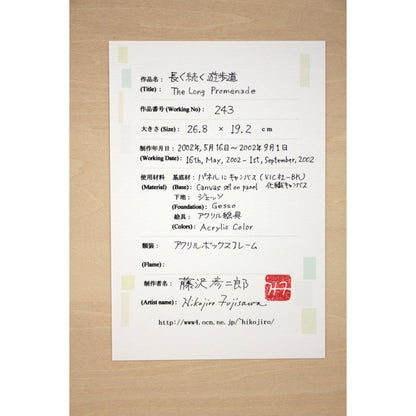 作品名: 長く続く遊歩道
(Title): The Long Promenade
作品番号(Working No): 243
大きさ(Size): 26.8 × 19.2 cm
制作年月日: 2002年, 5月16日〜2002年9月1日
(Working Date): 16th, May, 2002 - 1st, September, 2002
使用材料 基底材: パネルにキャンバス (VIC社-BK)
(Material) (Base): Canvas set on panel 化繊キャンバス
下地: ジェッソ
(Foundation): Gesso
絵具: アクリル絵具
(Colors): Acrylic Color
額装: アクリルボックスフレーム
(Flame):
制作者名: 藤沢彦二郎
(Artist name): Hikojiro Fujisawa
http://www4.ocn.ne.jp/~hikojiro/